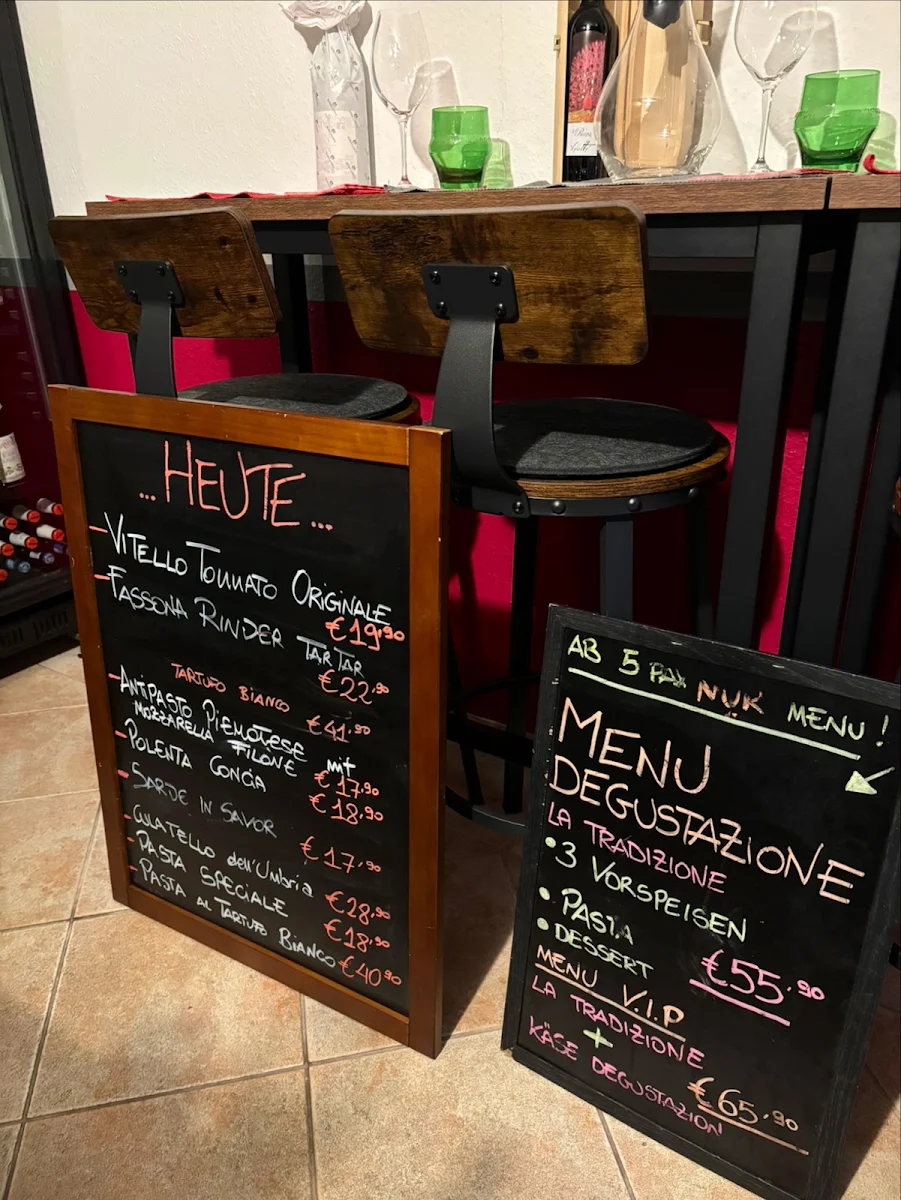 ...HEUTE...
-VITELLO TONNATO ORIGINALE
€19,90
-FASSONA RINDER TARTAR
€22,90
TARTUFO BIANCO
€41,90
-ANTIPASTO PIEMOTESE
MOZZARELLA FILONE mit
€17,90
-POLENTA CONCIA
€18,90
-SARDE IN SAVOR
€17,90
-CULATELLO dell'Umbria
€28,90
-PASTA SPECIALE
€18,90
-PASTA
AL TARTUFO BIANCO €40,90
AB 5 PAX NUR MENU!
MENU
DEGUSTAZIONE
LA TRADIZIONE
•3 VORSPEISEN
•PASTA
•DESSERT
€55,90
MENU V.I.P
LA TRADIZIONE
+
KÄSE DEGUSTAZION
€65,90